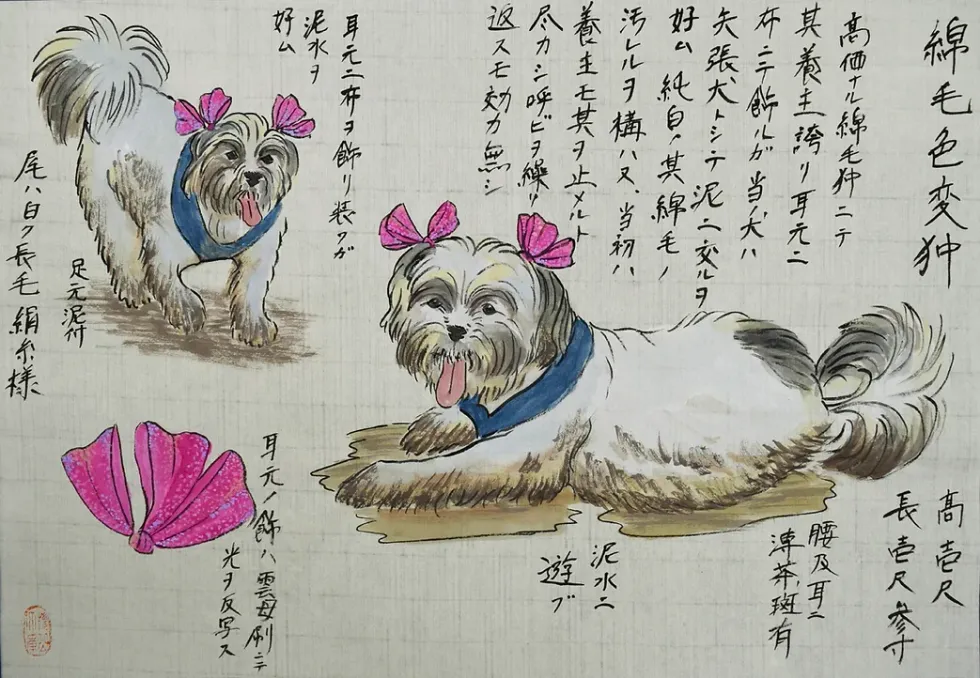 綿毛色変狆
高価ナル綿毛狆ニテ
其養主誇リ耳元ニ
布ニテ飾ルガ当犬ハ
矢張犬トシテ泥ニ交ルヲ
好ム純白ノ其綿毛ノ
汚レルヲ構ハズ、当初ハ
養主モ其ヲ止メルト
尽力シ呼ビヲ繰リ
返スモ効力無シ
耳元ニ布ヲ飾リ装フガ
泥水ヲ
好ム
足元泥付
尾ハ白ク長毛絹糸様
高壱尺
長壱尺参寸
腰及耳ニ
薄茶斑有
泥水ニ
遊ブ
耳元ノ飾ハ雲母刷ニテ
光ヲ反写ス